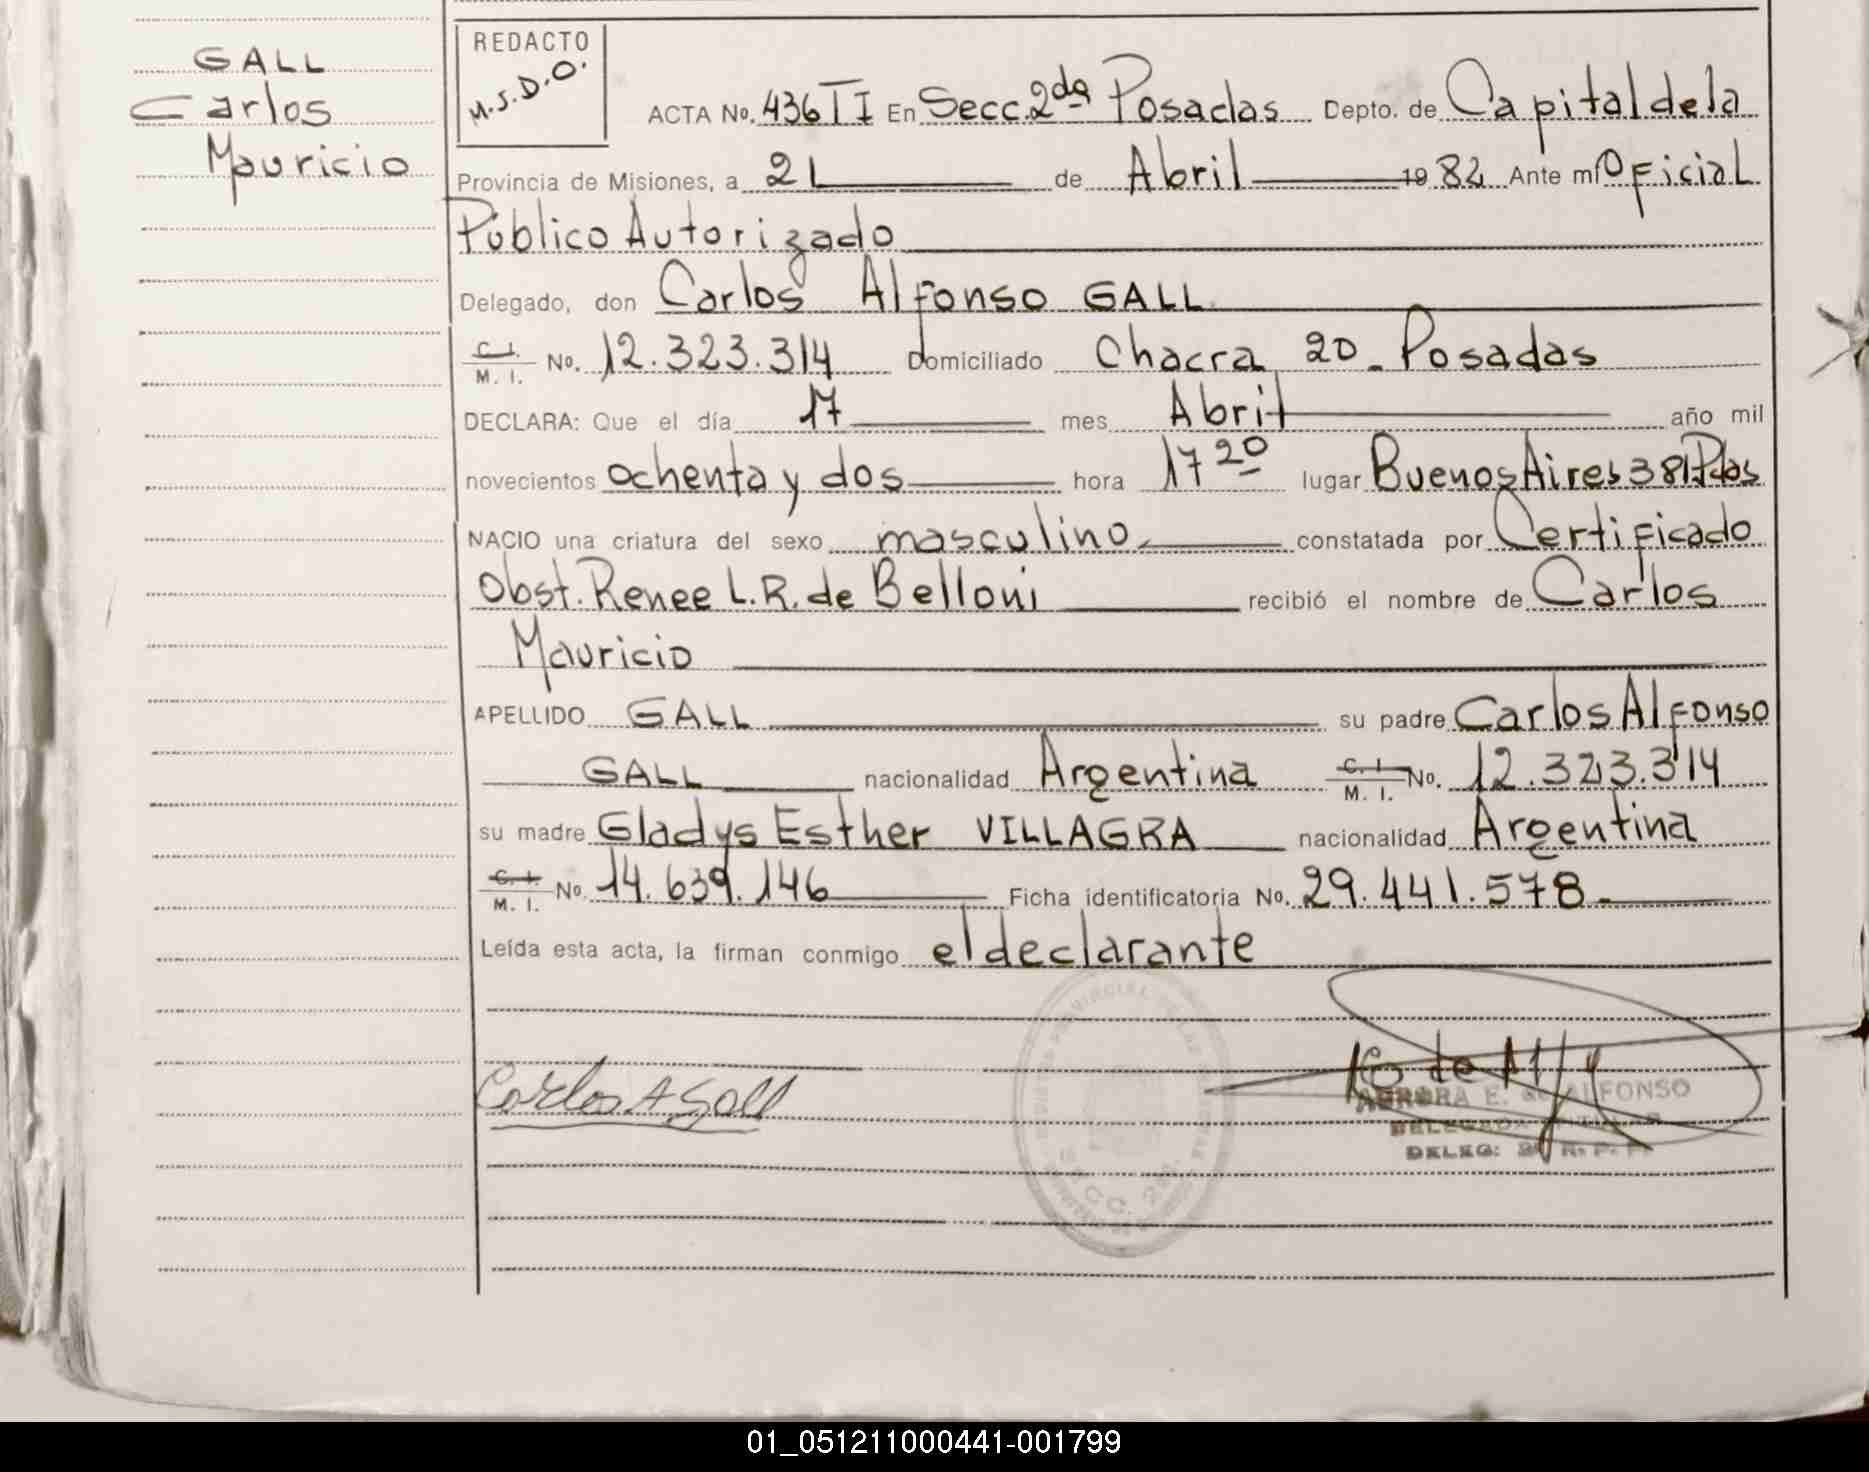 GALL
Carlos
Mauricio
REDACTO
M.S.D.O.
ACTA No. 436 TI En Secc. 2da Posadas Depto. de Capital de la
Provincia de Misiones, a 21 de Abril 1982 Ante mí Oficial
Público Autorizado
Delegado, don Carlos Alfonso GALL
C. I. M. I. No. 12.323.314 Domiciliado Chacra 20 - Posadas
DECLARA: Que el día 17 mes Abril año mil
novecientos ochenta y dos hora 17 20 lugar Buenos Aires 381 Pdas
NACIO una criatura del sexo masculino constatada por Certificado
Obst. Renee L. R. de Belloni recibió el nombre de Carlos
Mauricio
APELLIDO GALL su padre Carlos Alfonso
GALL nacionalidad Argentina C. I. M. I. No. 12.323.314
su madre Gladys Esther VILLAGRA nacionalidad Argentina
C. I. M. I. No. 14.639.146 Ficha identificatoria No. 29.441.578
Leída esta acta, la firman conmigo el declarante
Carlos A Gall
AURORA E. ALFONSO
DELEGADA TITULAR
DELEG: R. P. P.
SECC. 2da.
01_051211000441-001799